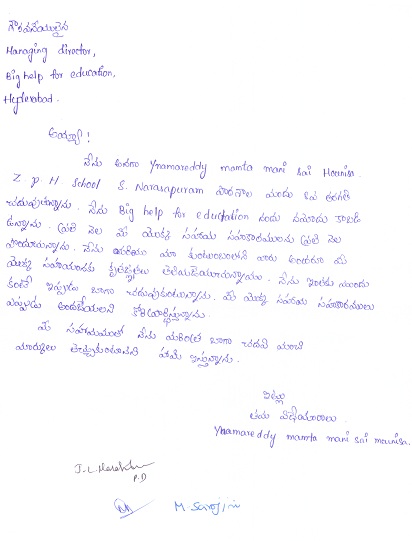 గౌరవనీయులైన
Managing director,
Big help for education,
Hyderabad.
అయ్యా!
నేను అనగా Ynamareddy mamta mani sai Mounisa.
Z P H School S. Narasapuram పాఠశాల నందు 8వ తరగతి
చదువుతున్నాను. నేను Big help for education నందు నమోదు కాబడి
ఉన్నాను. ప్రతి నెల మీ యొక్క సహాయ సహకారములను ప్రతి నెల
పొందుచున్నాను. నేను మరియు మా కుటుంబంలోని వారు అందరూ మీ
యొక్క సహాయానికి కృతజ్ఞతలు తెలియజేయుచున్నాము. నేను ఇంతకు ముందు
కంటే ఇప్పుడు బాగా చదువుకుంటున్నాను. మీ యొక్క సహాయ సహకారములు
ఎప్పుడు అందజేయాలని కోరిప్రార్థిస్తున్నాను.
మీ సహాయముతో నేను మరింత బాగా చదివి మంచి
మార్కులు తెచ్చుకుంటానని హామీ ఇస్తున్నాను.
ఇట్లు
తమ విధేయురాలు
Ynamareddy mamta mani sai mounisa.
P.D
M Sarojini